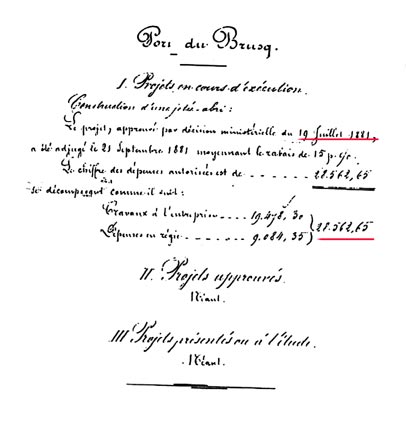 Port du Brusq.
I. Projets en cours d'exécution.
Construction d'une jetée-abri :
Le projet, approuvé par décision ministérielle du 19 Juillet 1881,
a été adjugé le 21 Septembre 1881 moyennant le rabais de 15 p. %.
Le chiffre des dépenses autorisées est de 28.562,65
se décomposant comme il suit :
Travaux à l'entreprise 19.478,30
Dépenses en régie 9.084,35 } 28.562,65
II. Projets approuvés.
Néant.
III Projets présentés ou à l'étude.
Néant.